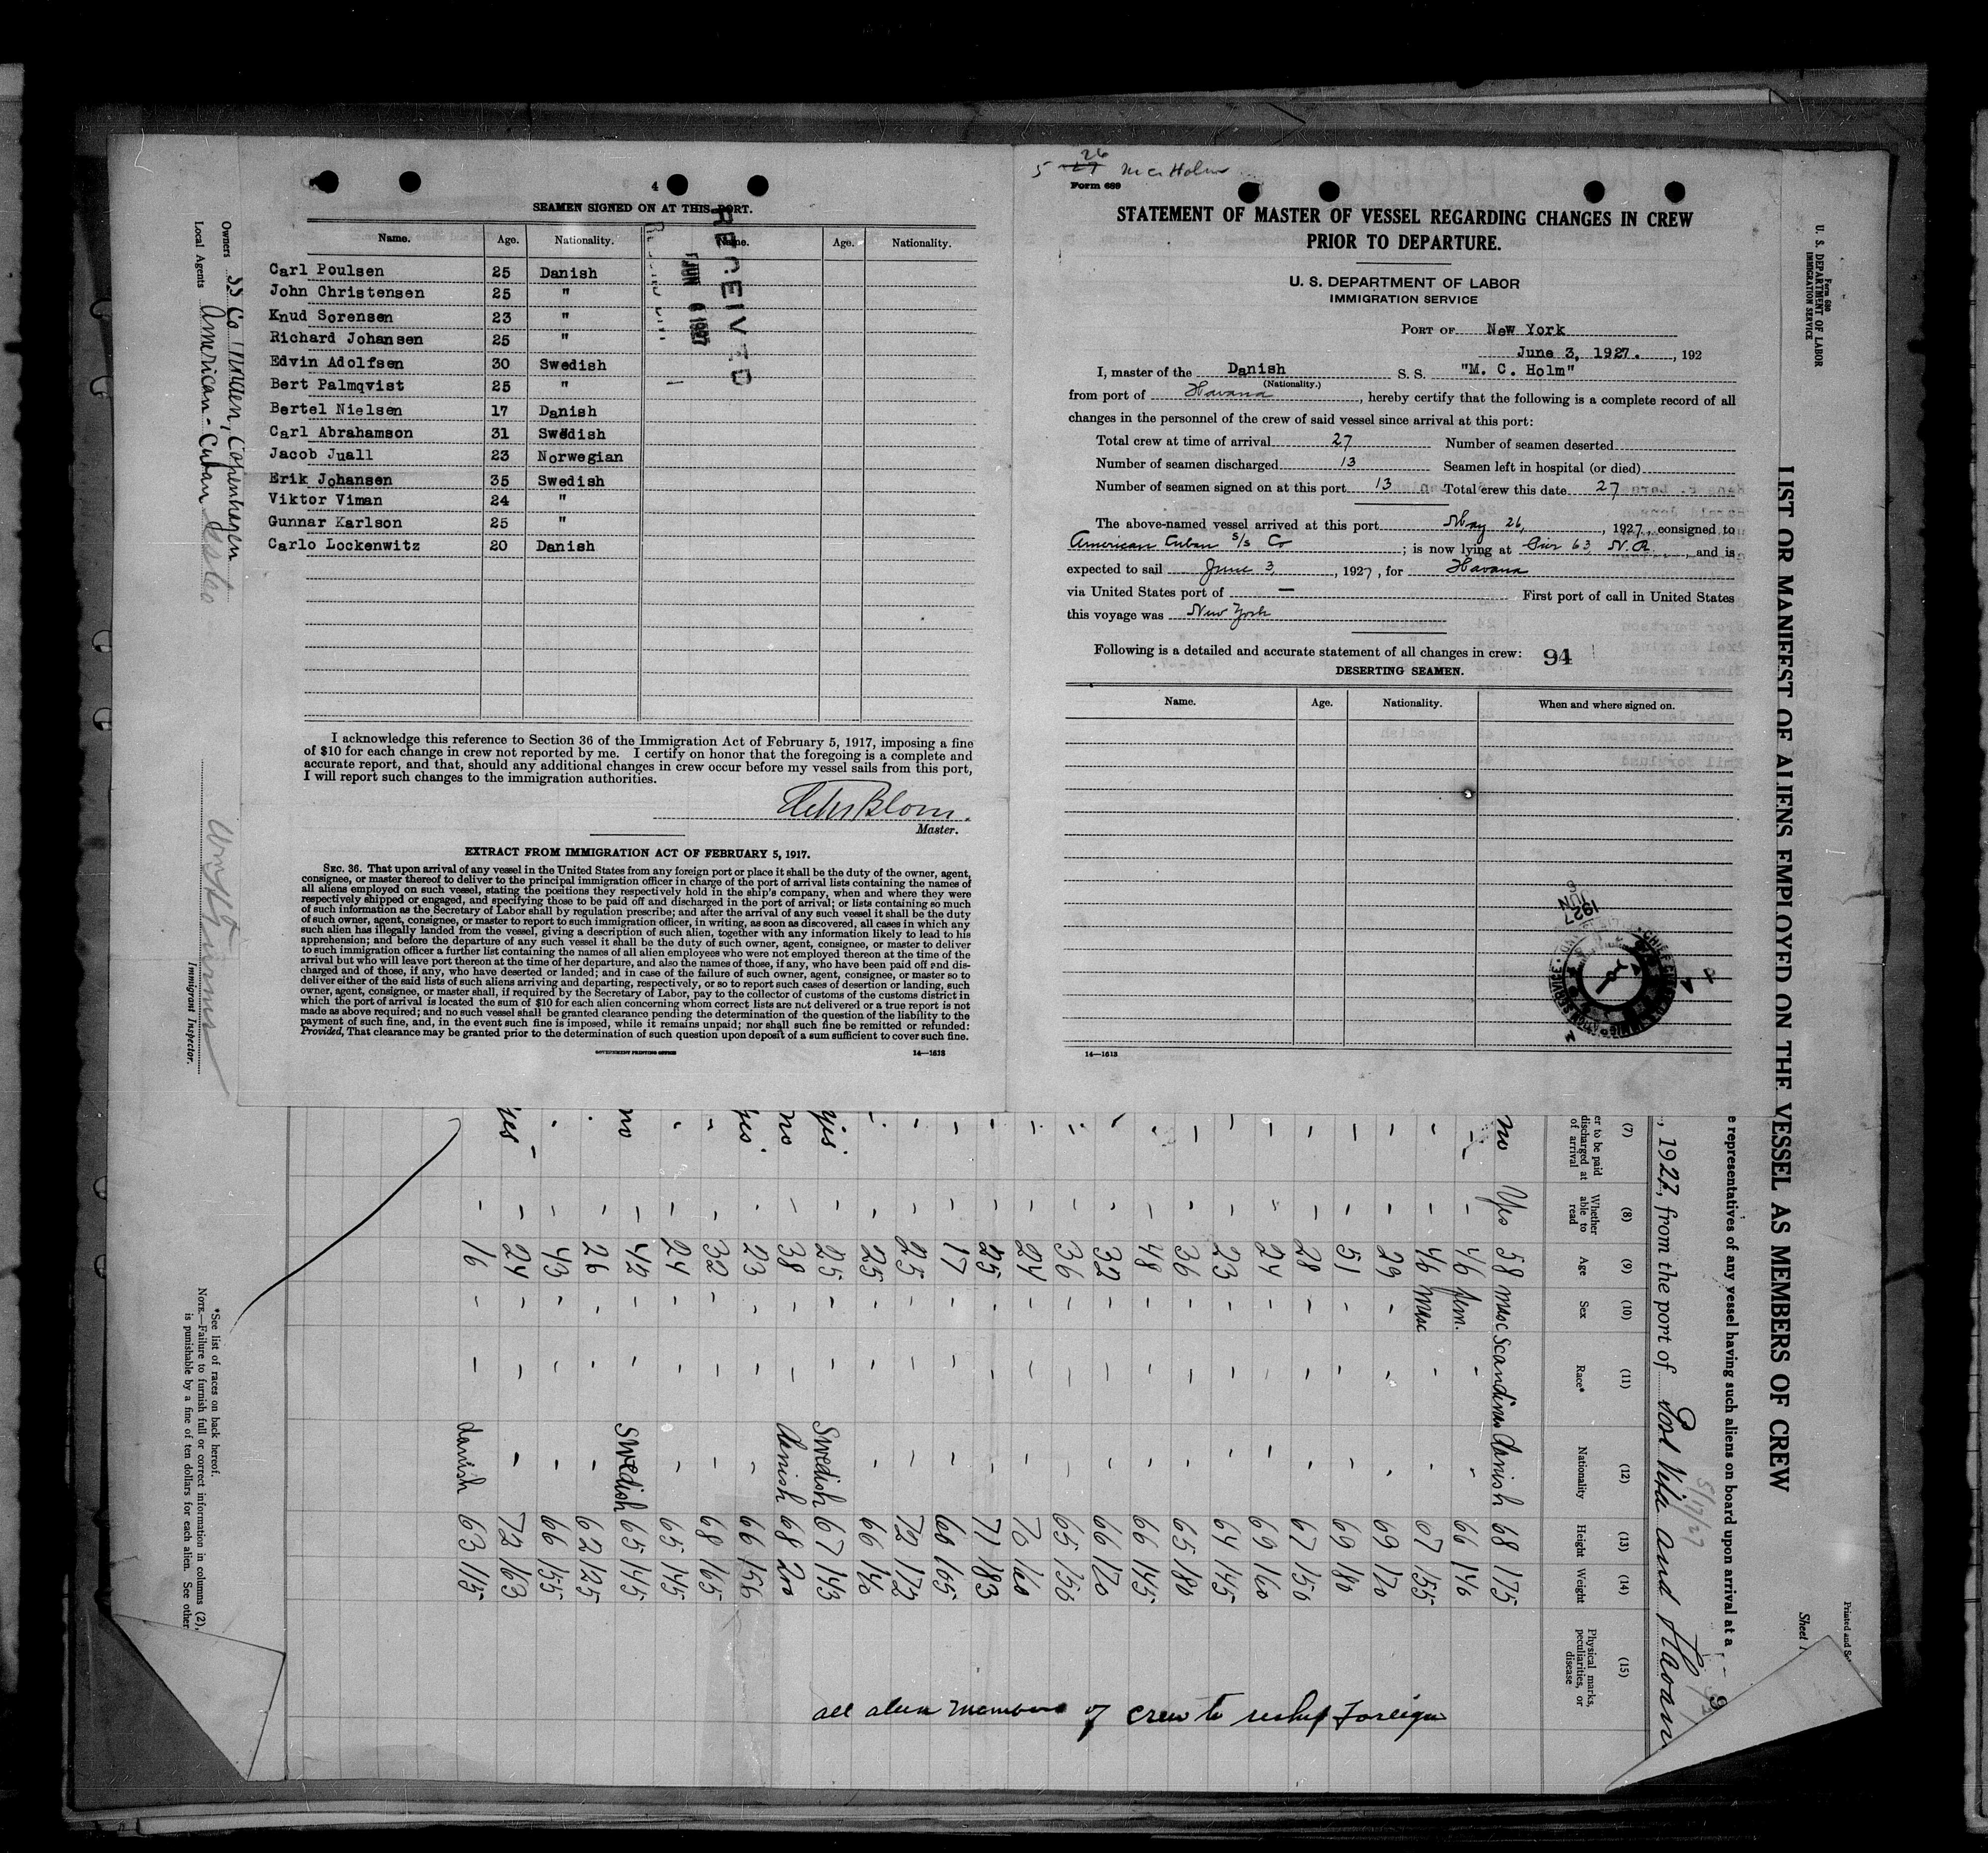 4
SEAMEN SIGNED ON AT THIS PORT.
Name. Age. Nationality. Name. Age. Nationality.
Carl Poulsen 25 Danish
John Christensen 25 "
Knud Sorensen 23 "
Richard Johansen 25 "
Edvin Adolfsen 30 Swedish
Bert Palmqvist 25 "
Bertel Nielsen 17 Danish
Carl Abrahamson 31 Swedish
Jacob Juall 23 Norwegian
Erik Johansen 35 Swedish
Viktor Viman 24 "
Gunnar Karlson 25 "
Carlo Lockenwitz 20 Danish
RECEIVED
JUN 6 1927
I acknowledge this reference to Section 36 of the Immigration Act of February 5, 1917, imposing a fine
of $10 for each change in crew not reported by me. I certify on honor that the foregoing is a complete and
accurate report, and that, should any additional changes in crew occur before my vessel sails from this port,
I will report such changes to the immigration authorities.
Blom.
Master.
EXTRACT FROM IMMIGRATION ACT OF FEBRUARY 5, 1917.
SEC. 36. That upon arrival of any vessel in the United States from any foreign port or place it shall be the duty of the owner, agent,
consignee, or master thereof to deliver to the principal immigration officer in charge of the port of arrival lists containing the names of
all aliens employed on such vessel, stating the positions they respectively hold in the ship's company, when and where they were
respectively shipped or engaged, and specifying those to be paid off and discharged in the port of arrival; or lists containing so much
of such information as the Secretary of Labor shall by regulation prescribe; and after the arrival of any such vessel it shall be the duty
of such owner, agent, consignee, or master to report to such immigration officer, in writing, as soon as discovered, all cases in which any
such alien has illegally landed from the vessel, giving a description of such alien, together with any information likely to lead to his
apprehension; and before the departure of any such vessel it shall be the duty of such owner, agent, consignee, or master to deliver
to such immigration officer a further list containing the names of all alien employees who were not employed thereon at the time of the
arrival but who will leave port thereon at the time of her departure, and also the names of those, if any, who have been paid off and dis-
charged and of those, if any, who have deserted or landed; and in case of the failure of such owner, agent, consignee, or master so to
deliver either of the said lists of such aliens arriving and departing, respectively, or so to report such cases of desertion or landing, such
owner, agent, consignee, or master shall, if required by the Secretary of Labor, pay to the collector of customs of the customs district in
which the port of arrival is located the sum of $10 for each alien concerning whom correct lists are not delivered or a true report is not
made as above required; and no such vessel shall be granted clearance pending the determination of the question of the liability to the
payment of such fine, and, in the event such fine is imposed, while it remains unpaid; nor shall such fine be remitted or refunded:
Provided, That clearance may be granted prior to the determination of such question upon deposit of a sum sufficient to cover such fine.
GOVERNMENT PRINTING OFFICE 14—1613
5 27 26 M C Holm
Form 689
STATEMENT OF MASTER OF VESSEL REGARDING CHANGES IN CREW
PRIOR TO DEPARTURE.
U. S. DEPARTMENT OF LABOR
IMMIGRATION SERVICE
PORT OF New York
June 3, 1927. , 192
I, master of the Danish S. S. "M. C. Holm"
(Nationality.)
from port of Havana , hereby certify that the following is a complete record of all
changes in the personnel of the crew of said vessel since arrival at this port:
Total crew at time of arrival 27 Number of seamen deserted
Number of seamen discharged 13 Seamen left in hospital (or died)
Number of seamen signed on at this port 13 Total crew this date 27
The above-named vessel arrived at this port May 26, , 1927, consigned to
American Cuban S/S Co ; is now lying at Pier 63 N. R. , and is
expected to sail June 3, , 1927, for Havana
via United States port of — First port of call in United States
this voyage was New York
Following is a detailed and accurate statement of all changes in crew: 94
DESERTING SEAMEN.
Name. Age. Nationality. When and where signed on.
1927
JUN
14—1613
U. S. DEPARTMENT OF LABOR
IMMIGRATION SERVICE
LIST OR MANIFEST OF ALIENS EMPLOYED ON THE VESSEL AS MEMBERS OF CREW
Sheet
e representatives of any vessel having such aliens on board upon arrival at a
5/17/27
, 1927, from the port of Port Vita and Havan
(7) (8) (9) (10) (11) (12) (13) (14) (15)
er to be paid discharged at of arrival
Whether able to read
Age
Sex
Race*
Nationality
Height
Weight
Physical marks, peculiarities, or disease
no Yes 58 masc Scandinav danish 68 175
" - 46 fem. - 66 146
- - 46 masc - - 67 155
- - 29 - - - 69 170
- - 51 - - - 69 180
- - 28 - - - 67 150
- - 24 - - - 69 160
- - 23 - - - 64 145
- - 36 - - - 65 180
- - 48 - - - 66 145
- - 32 - - - 66 170
- - 36 - - - 65 150
- - 24 - - - 70 160
- - 25 - - - 71 183
- - 17 - - - 66 165
- - 25 - - - 72 172
- - 25 - - - 66 140
yes - 25 - - Swedish 67 143
no - 38 - - danish 68 200
yes - 23 - - - 66 156
- - 32 - - - 68 165
- - 24 - - - 65 145
no - 42 - - Swedish 65 145
- - 26 - - - 62 125
- - 43 - - - 66 155
yes - 24 - - - 72 163
- 16 - - danish 63 115
all alien members of crew to reship Foreign
Owners SS Co Copenhagen
Local Agents American-Cuban
Immigrant Inspector.
*See list of races on back hereof.
NOTE.—Failure to furnish full or correct information in columns (2),
is punishable by a fine of ten dollars for each alien. See other